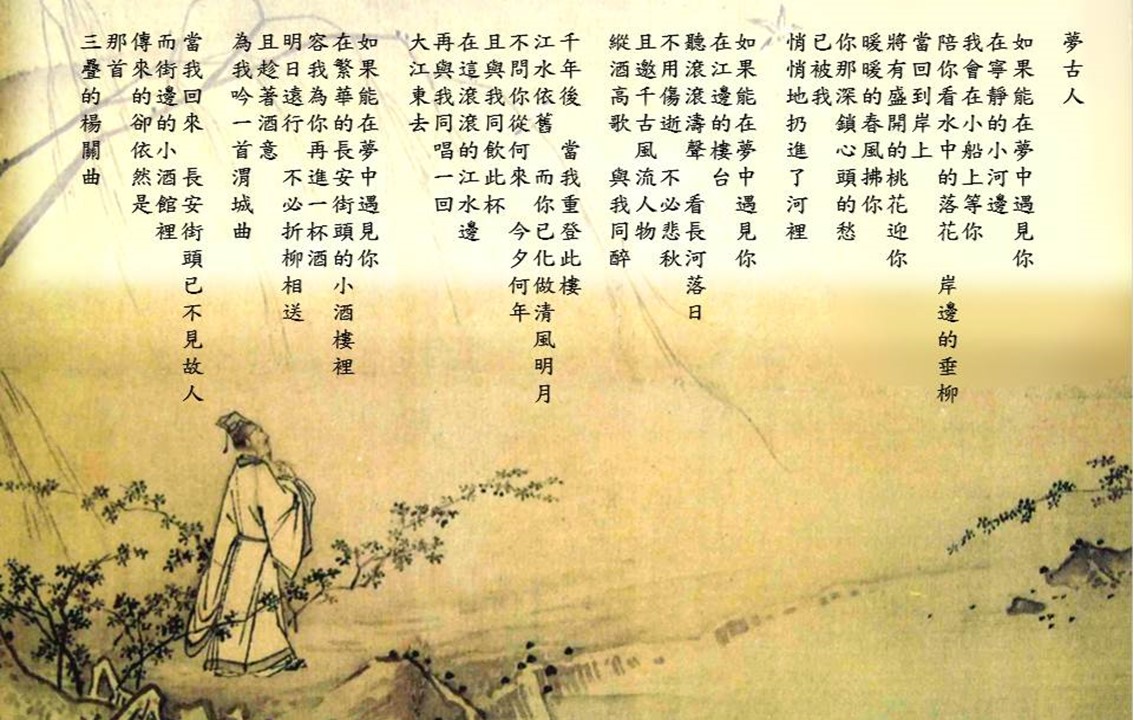 夢古人
如果能在夢中遇見你
在寧靜的小河邊
我會在小船上等你
陪你看水中的落花　岸邊的垂柳
當回到岸上
將有盛開的桃花迎你
暖暖的春風拂你
你那深鎖心頭的愁
已被我
悄悄地扔進了河裡
如果能在夢中遇見你
在江邊的樓台
聽滾滾濤聲　看長河落日
不用傷逝　不必悲秋
且邀千古風流人物
縱酒高歌　與我同醉
千年後　當我重登此樓
江水依舊　而你已化做清風明月
不問你從何來　今夕何年
且與我同飲此杯
在這滾滾的江水邊
再與我同唱一回
大江東去
如果能在夢中遇見你
在繁華的長安街頭的小酒樓裡
容我為你再進一杯酒
明日遠行　不必折柳相送
且趁著酒意
為我吟一首渭城曲
當我回來　長安街頭已不見故人
而街邊的小酒館裡
傳來的卻依然是
那首
三疊的楊關曲